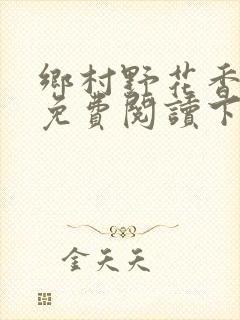 鄉村野花香
免費閱讀下
金天天